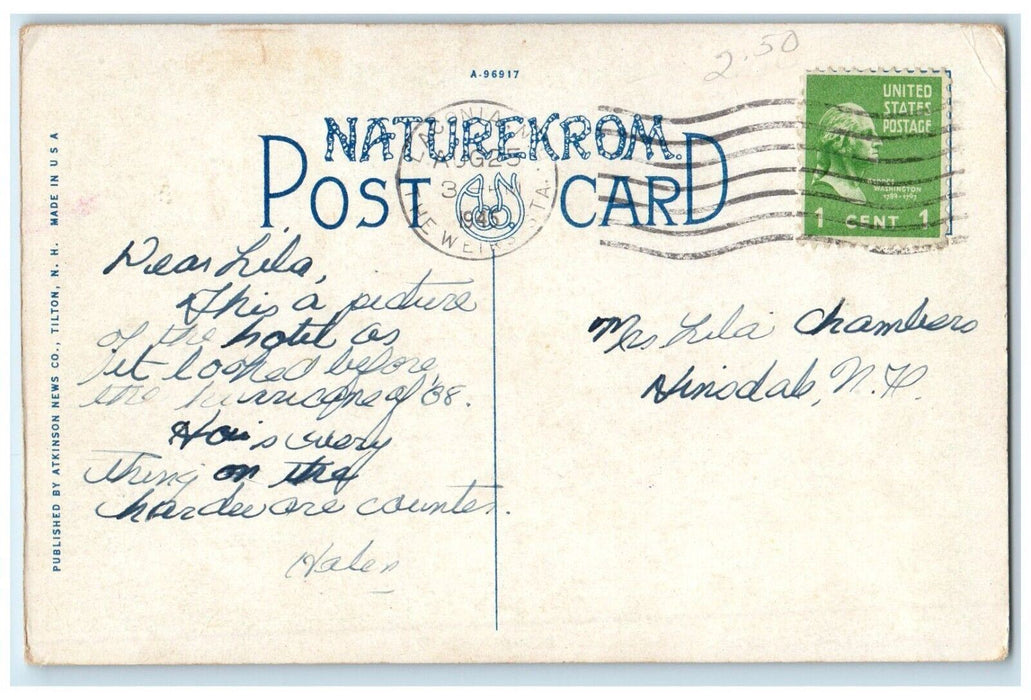 2.50
A-96917
NATUREKROM
POST CARD
AN
Co.
LACONIA N.H.
AUG 25
3
1945
THE WEIRS STA.
UNITED
STATES
POSTAGE
GEORGE
WASHINGTON
1789-1797
1 CENT 1
PUBLISHED BY ATKINSON NEWS CO., TILTON, N. H. MADE IN U S A
Dear Lila,
This a picture
of the hotel as
it looked before
the hurricane of '38.
How's every
thing on the
hardware counter.
Helen
Mrs Lila Chambers
Hinsdale, N.H.